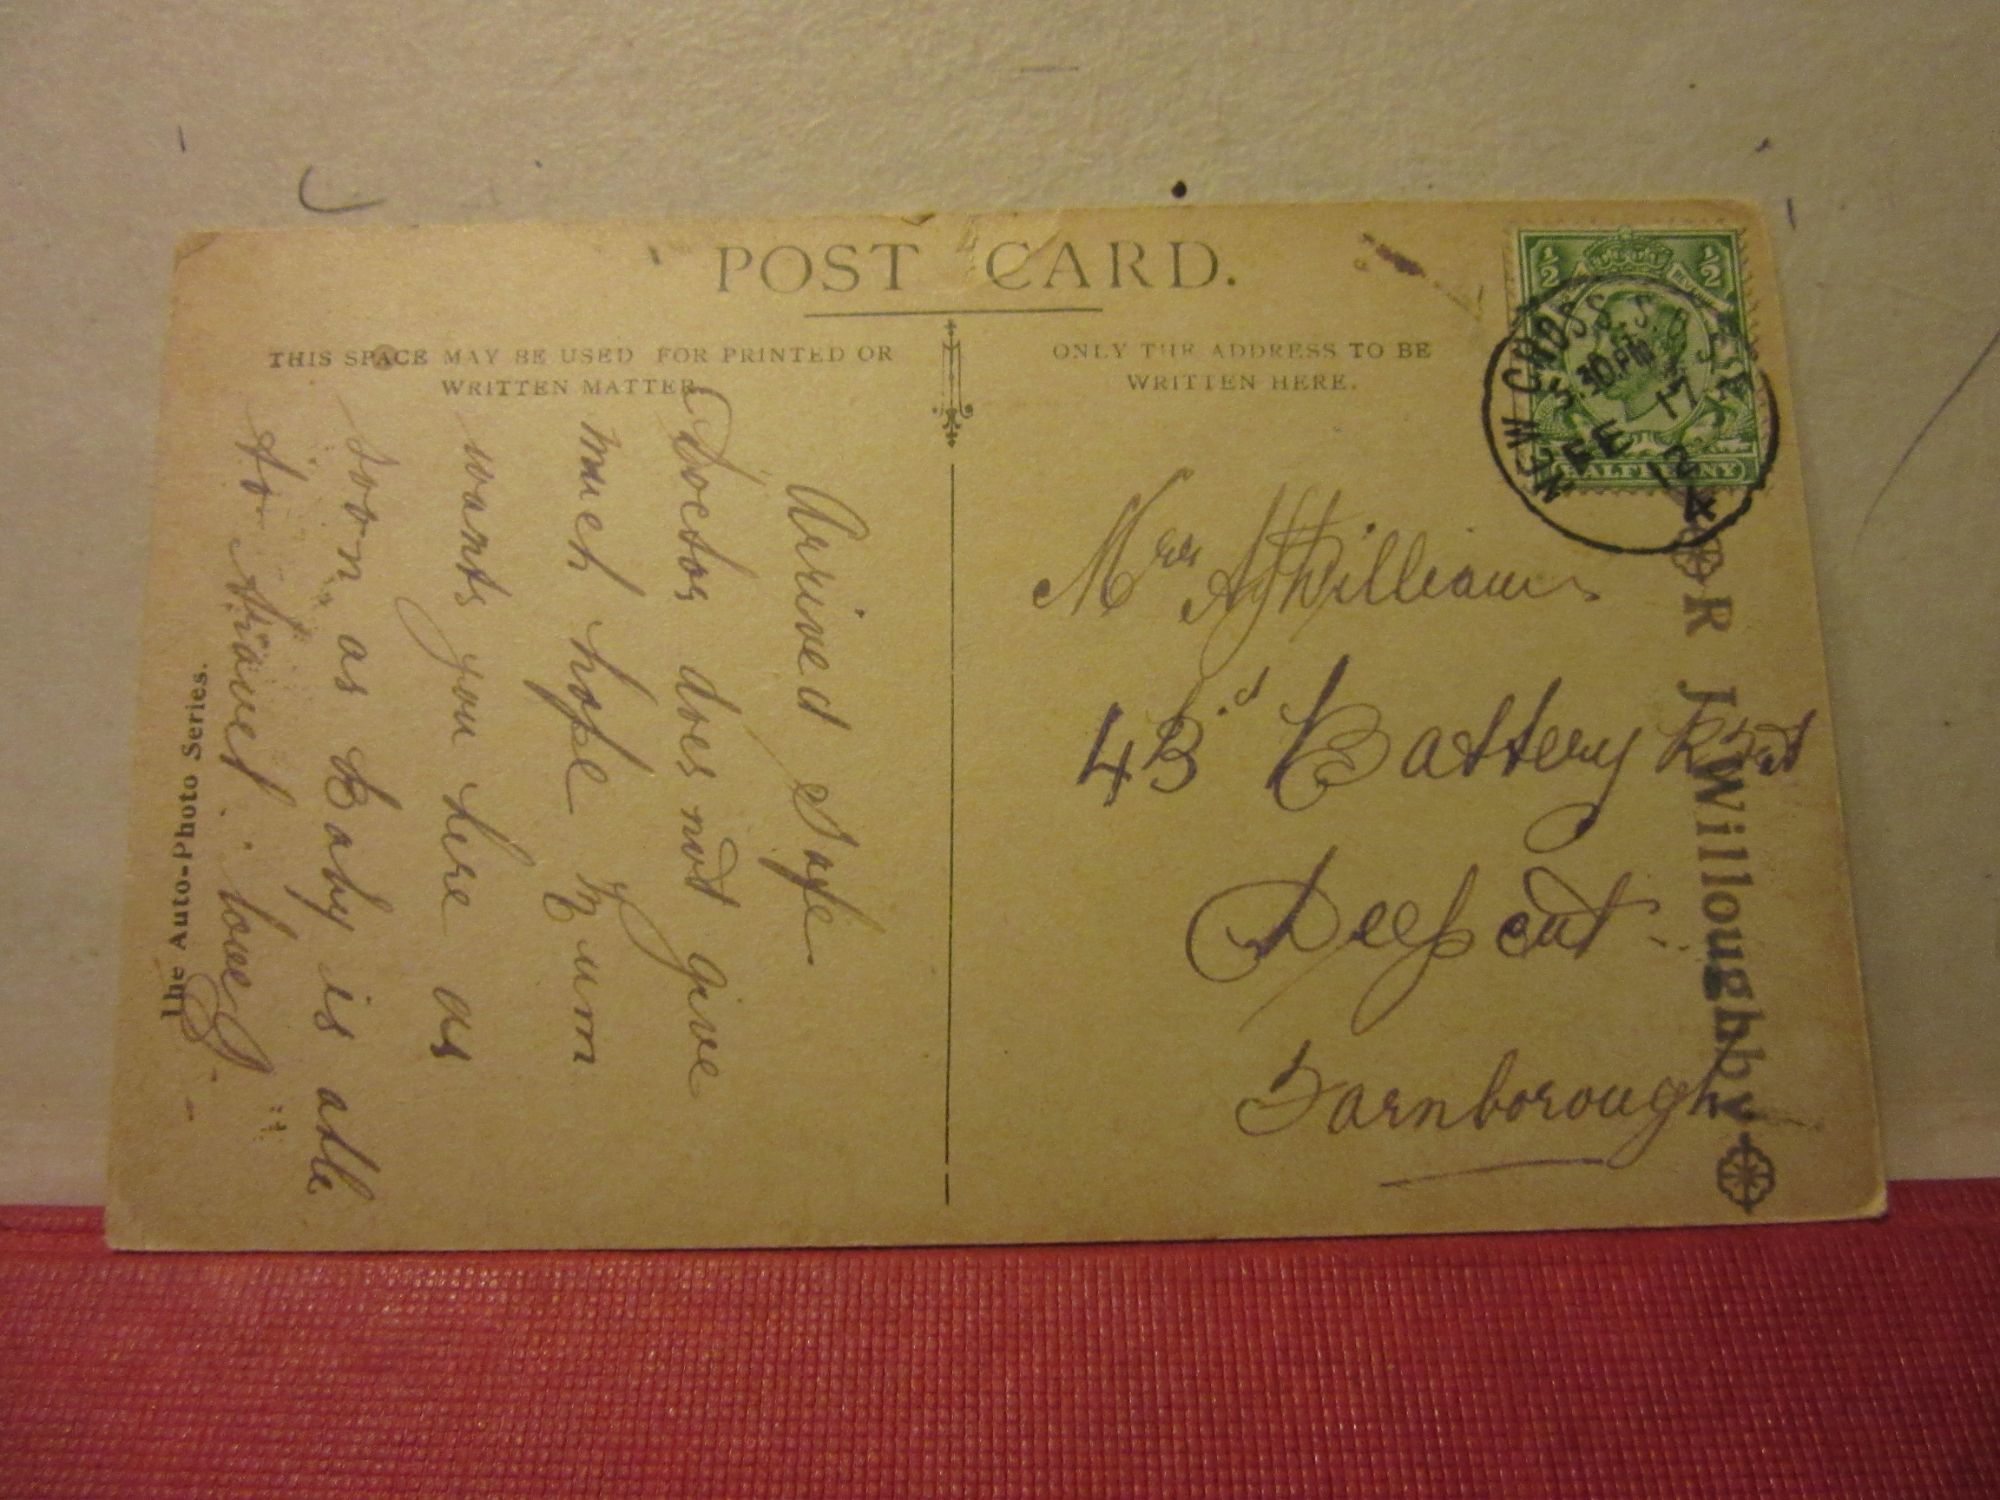 POST CARD.
THIS SPACE MAY BE USED FOR PRINTED OR
WRITTEN MATTER.
ONLY THE ADDRESS TO BE
WRITTEN HERE.
Arrived Safe
Doctor does not give
much hope Mum
wants you here as
soon as Baby is able
to travel. love
The Auto-Photo Series.
Mrs Williams
43rd Battery
Deepcut
Farnborough
1/2 1/2
HALFPENNY
NEW CROSS S.O. S.E.
5.30PM
FE 17
12
R J Willoughby